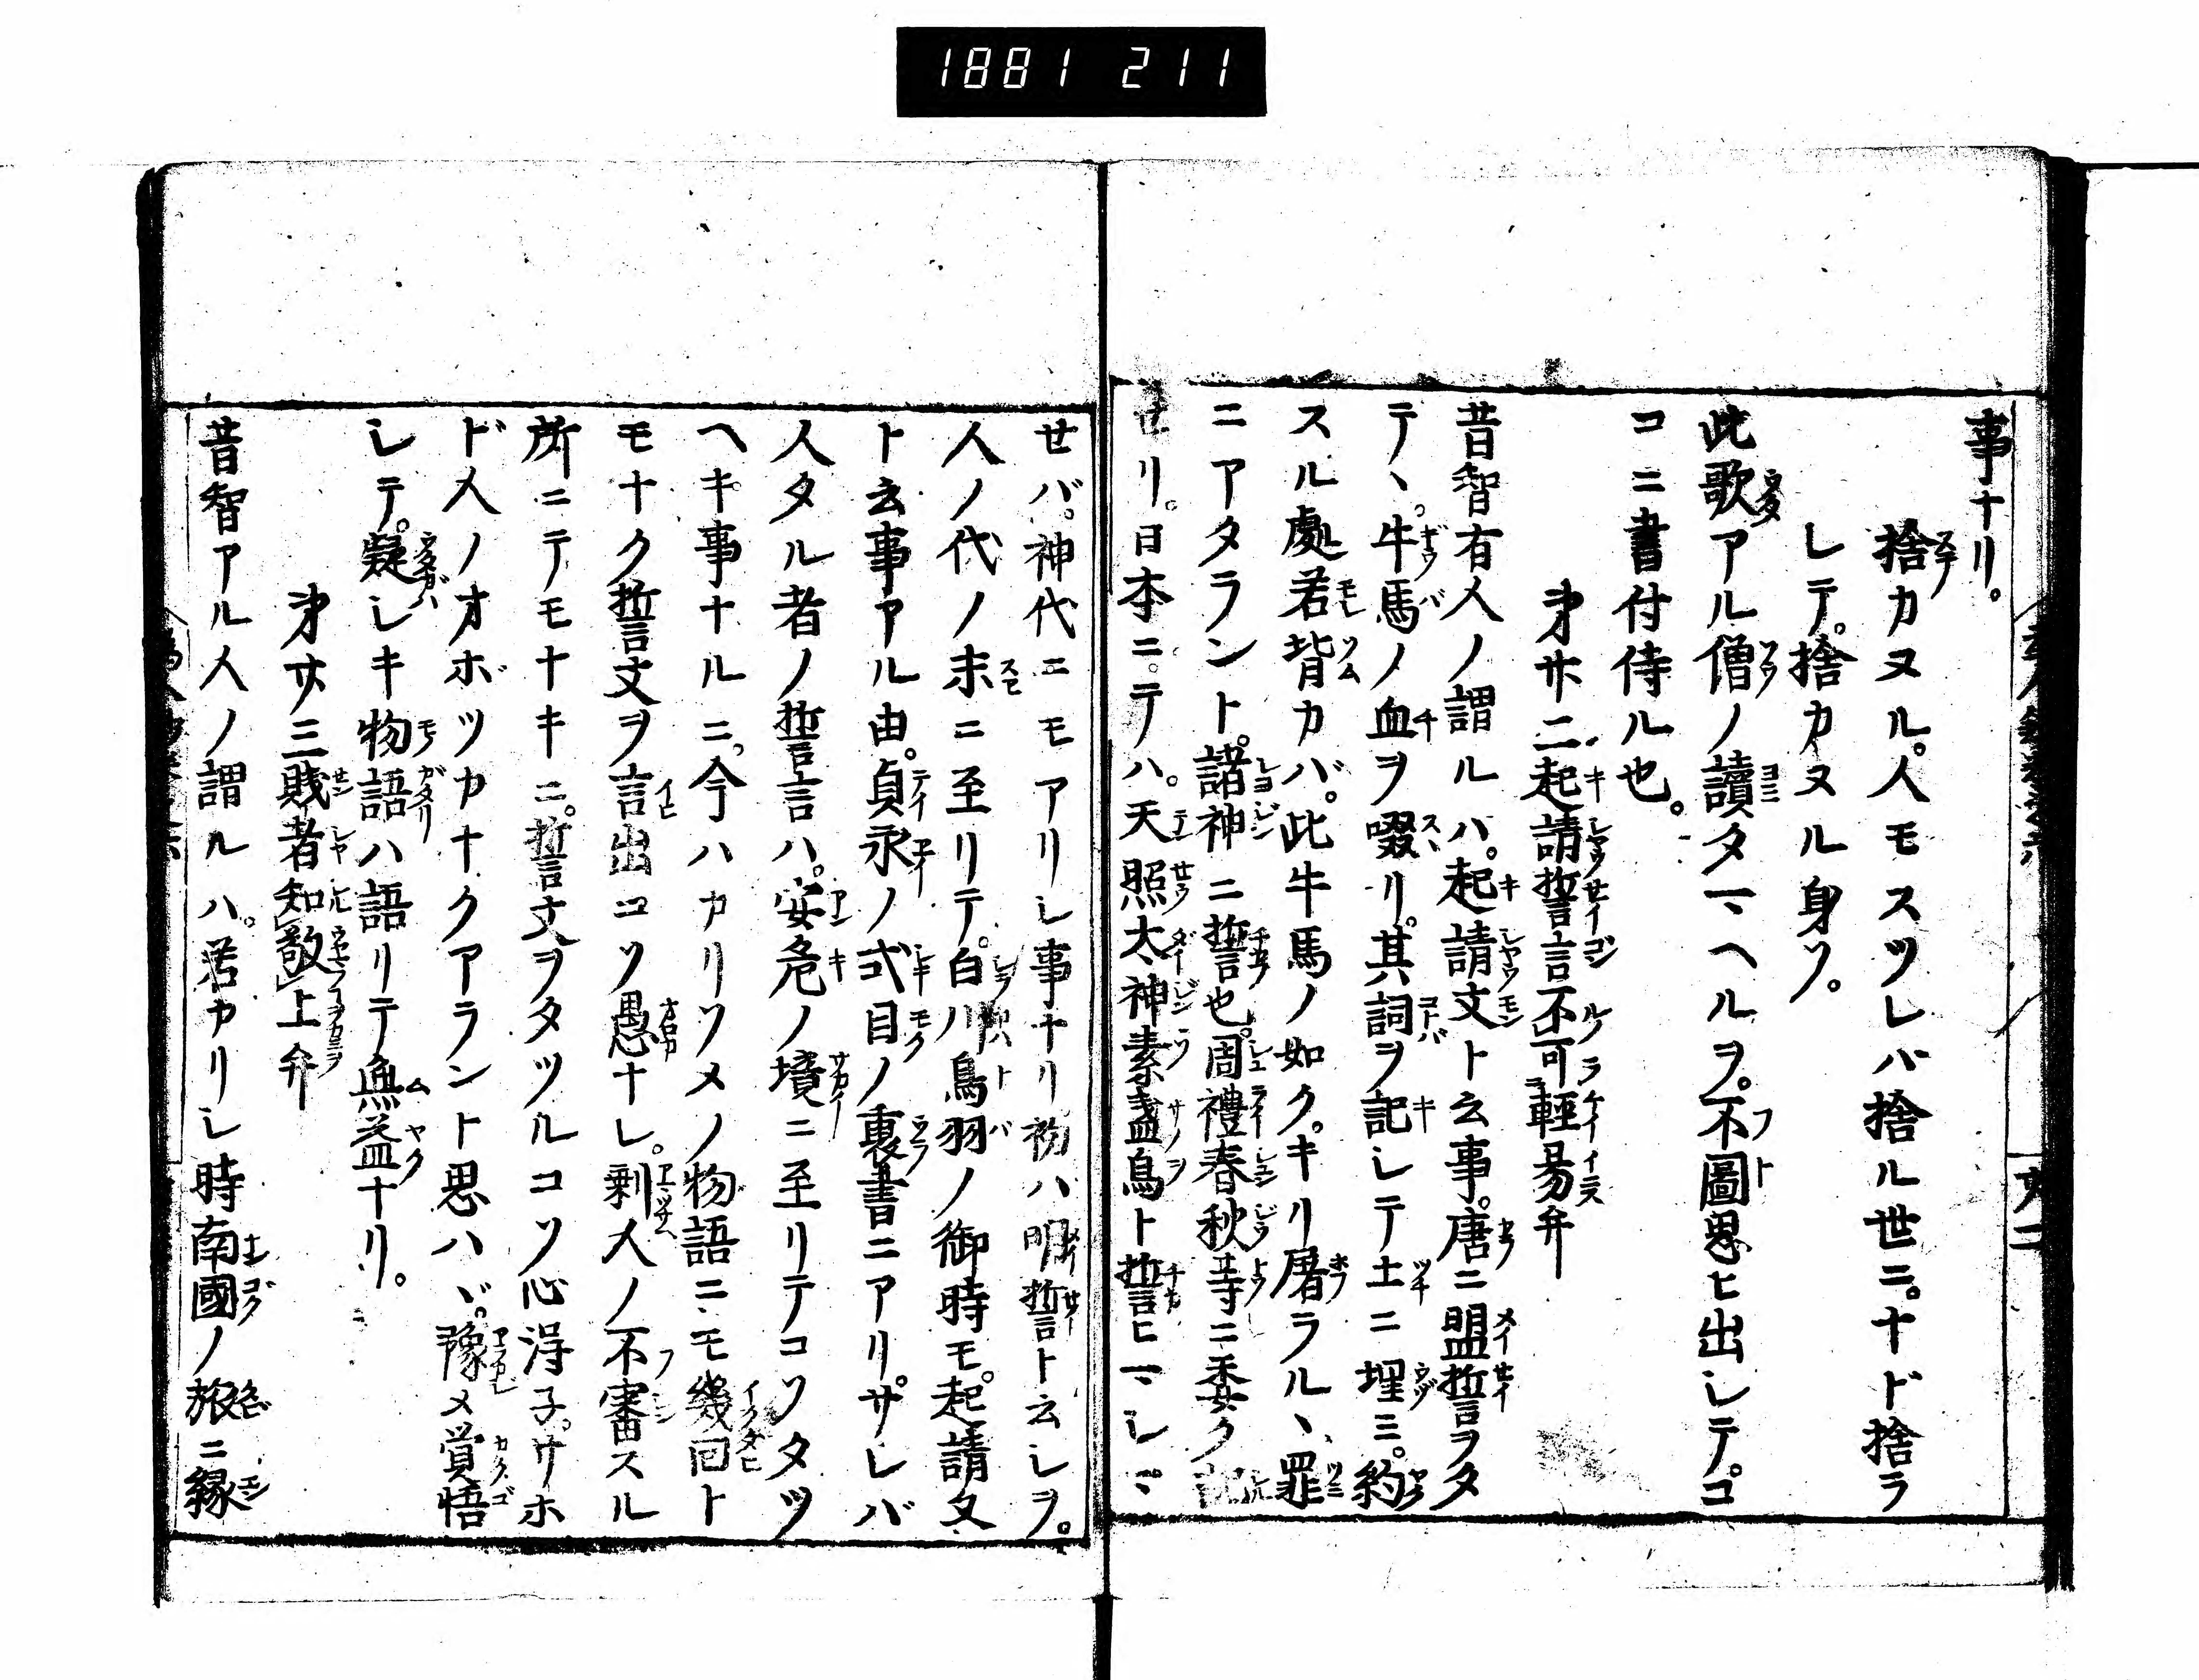 1881 211
事ナリ。
捨カヌル。人モスツレバ捨ル世ニ。ナド捨ラ
レテ。捨カヌル身ソ。
此歌アル僧ノ讀タマヘルヲ。不圖思ヒ出シテ。コ
コニ書付侍ル也。
第廿二起請誓言不可輕易弁
昔智有人ノ謂ルハ。起請文ト云事。唐ニ盟誓ヲタ
テヽ。牛馬ノ血ヲ啜リ。其詞ヲ記シテ土ニ埋ミ。約
スル處若背カバ。此牛馬ノ如ク。キリ屠ラルヽ罪
ニアタラント。諸神ニ誓也。周禮春秋等ニ委ク記
せリ。日本ニテハ。天照太神素盞烏ト誓ヒマシマ
せバ。神代ニモアリシ事ナリ初ハ明誓ト云シヲ。
人ノ代ノ末ニ至リテ。白川鳥羽ノ御時モ。起請文
ト云事アル由。貞永ノ式目ノ裏書ニアリ。サレバ
人タル者ノ誓言ハ。安危ノ境ニ至リテコソタツ
ヘキ事ナルニ。今ハカリソメノ物語ニモ幾回ト
モナク誓文ヲ言出コソ愚ナレ。剰人ノ不審スル
所ニテモナキニ。誓文ヲタツルコソ心淂子。サホ
ド人ノオボツカナクアラント思ハヾ。豫メ覚悟
シテ。疑シキ物語ハ語リテ無益ナリ。
第廿三賎者知敬上弁
昔智アル人ノ謂ルハ。若カリシ時南國ノ旅ニ縁